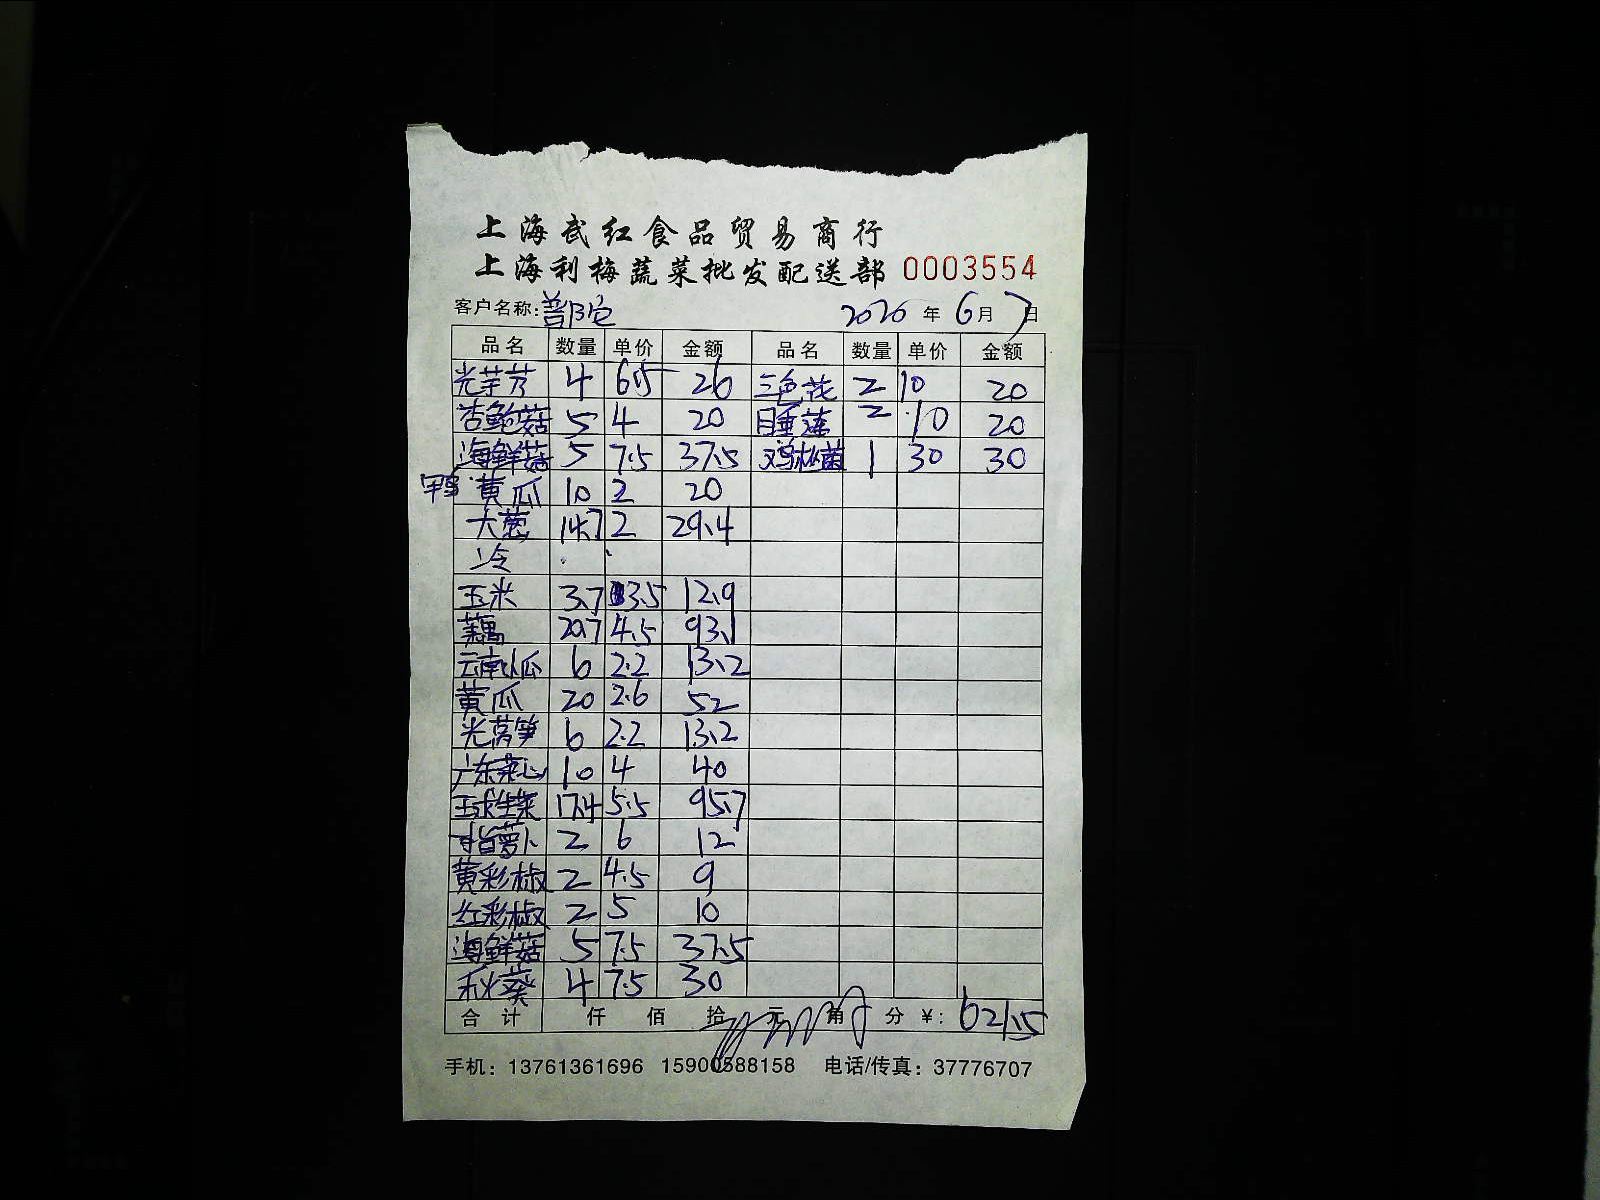 上海武红食品贸易商行
上海利梅蔬菜批发配送部 0003554
客户名称: 2020 年 6 月 7 日
品名 数量 单价 金额 品名 数量 单价 金额
光芋艿 4 6.5 26 三色花 2 10 20
杏鲍菇 5 4 20 睡莲 2 10 20
海鲜菇 5 7.5 37.5 鸡枞菌 1 30 30
黄瓜 10 2 20
大葱 14.7 2 29.4
冷
玉米 3.7 3.5 12.9
莲藕 20.7 4.5 93.1
云南小瓜 6 2.2 13.2
黄瓜 20 2.6 52
光莴笋 6 2.2 13.2
广东菜心 10 4 40
玉球生菜 17.4 5.5 95.7
手指萝卜 2 6 12
黄彩椒 2 4.5 9
红彩椒 2 5 10
海鲜菇 5 7.5 37.5
秋葵 4 7.5 30
合计 仟 佰 拾 元 角 分 ¥: 621.5
手机: 13761361696 15900588158 电话/传真: 37776707